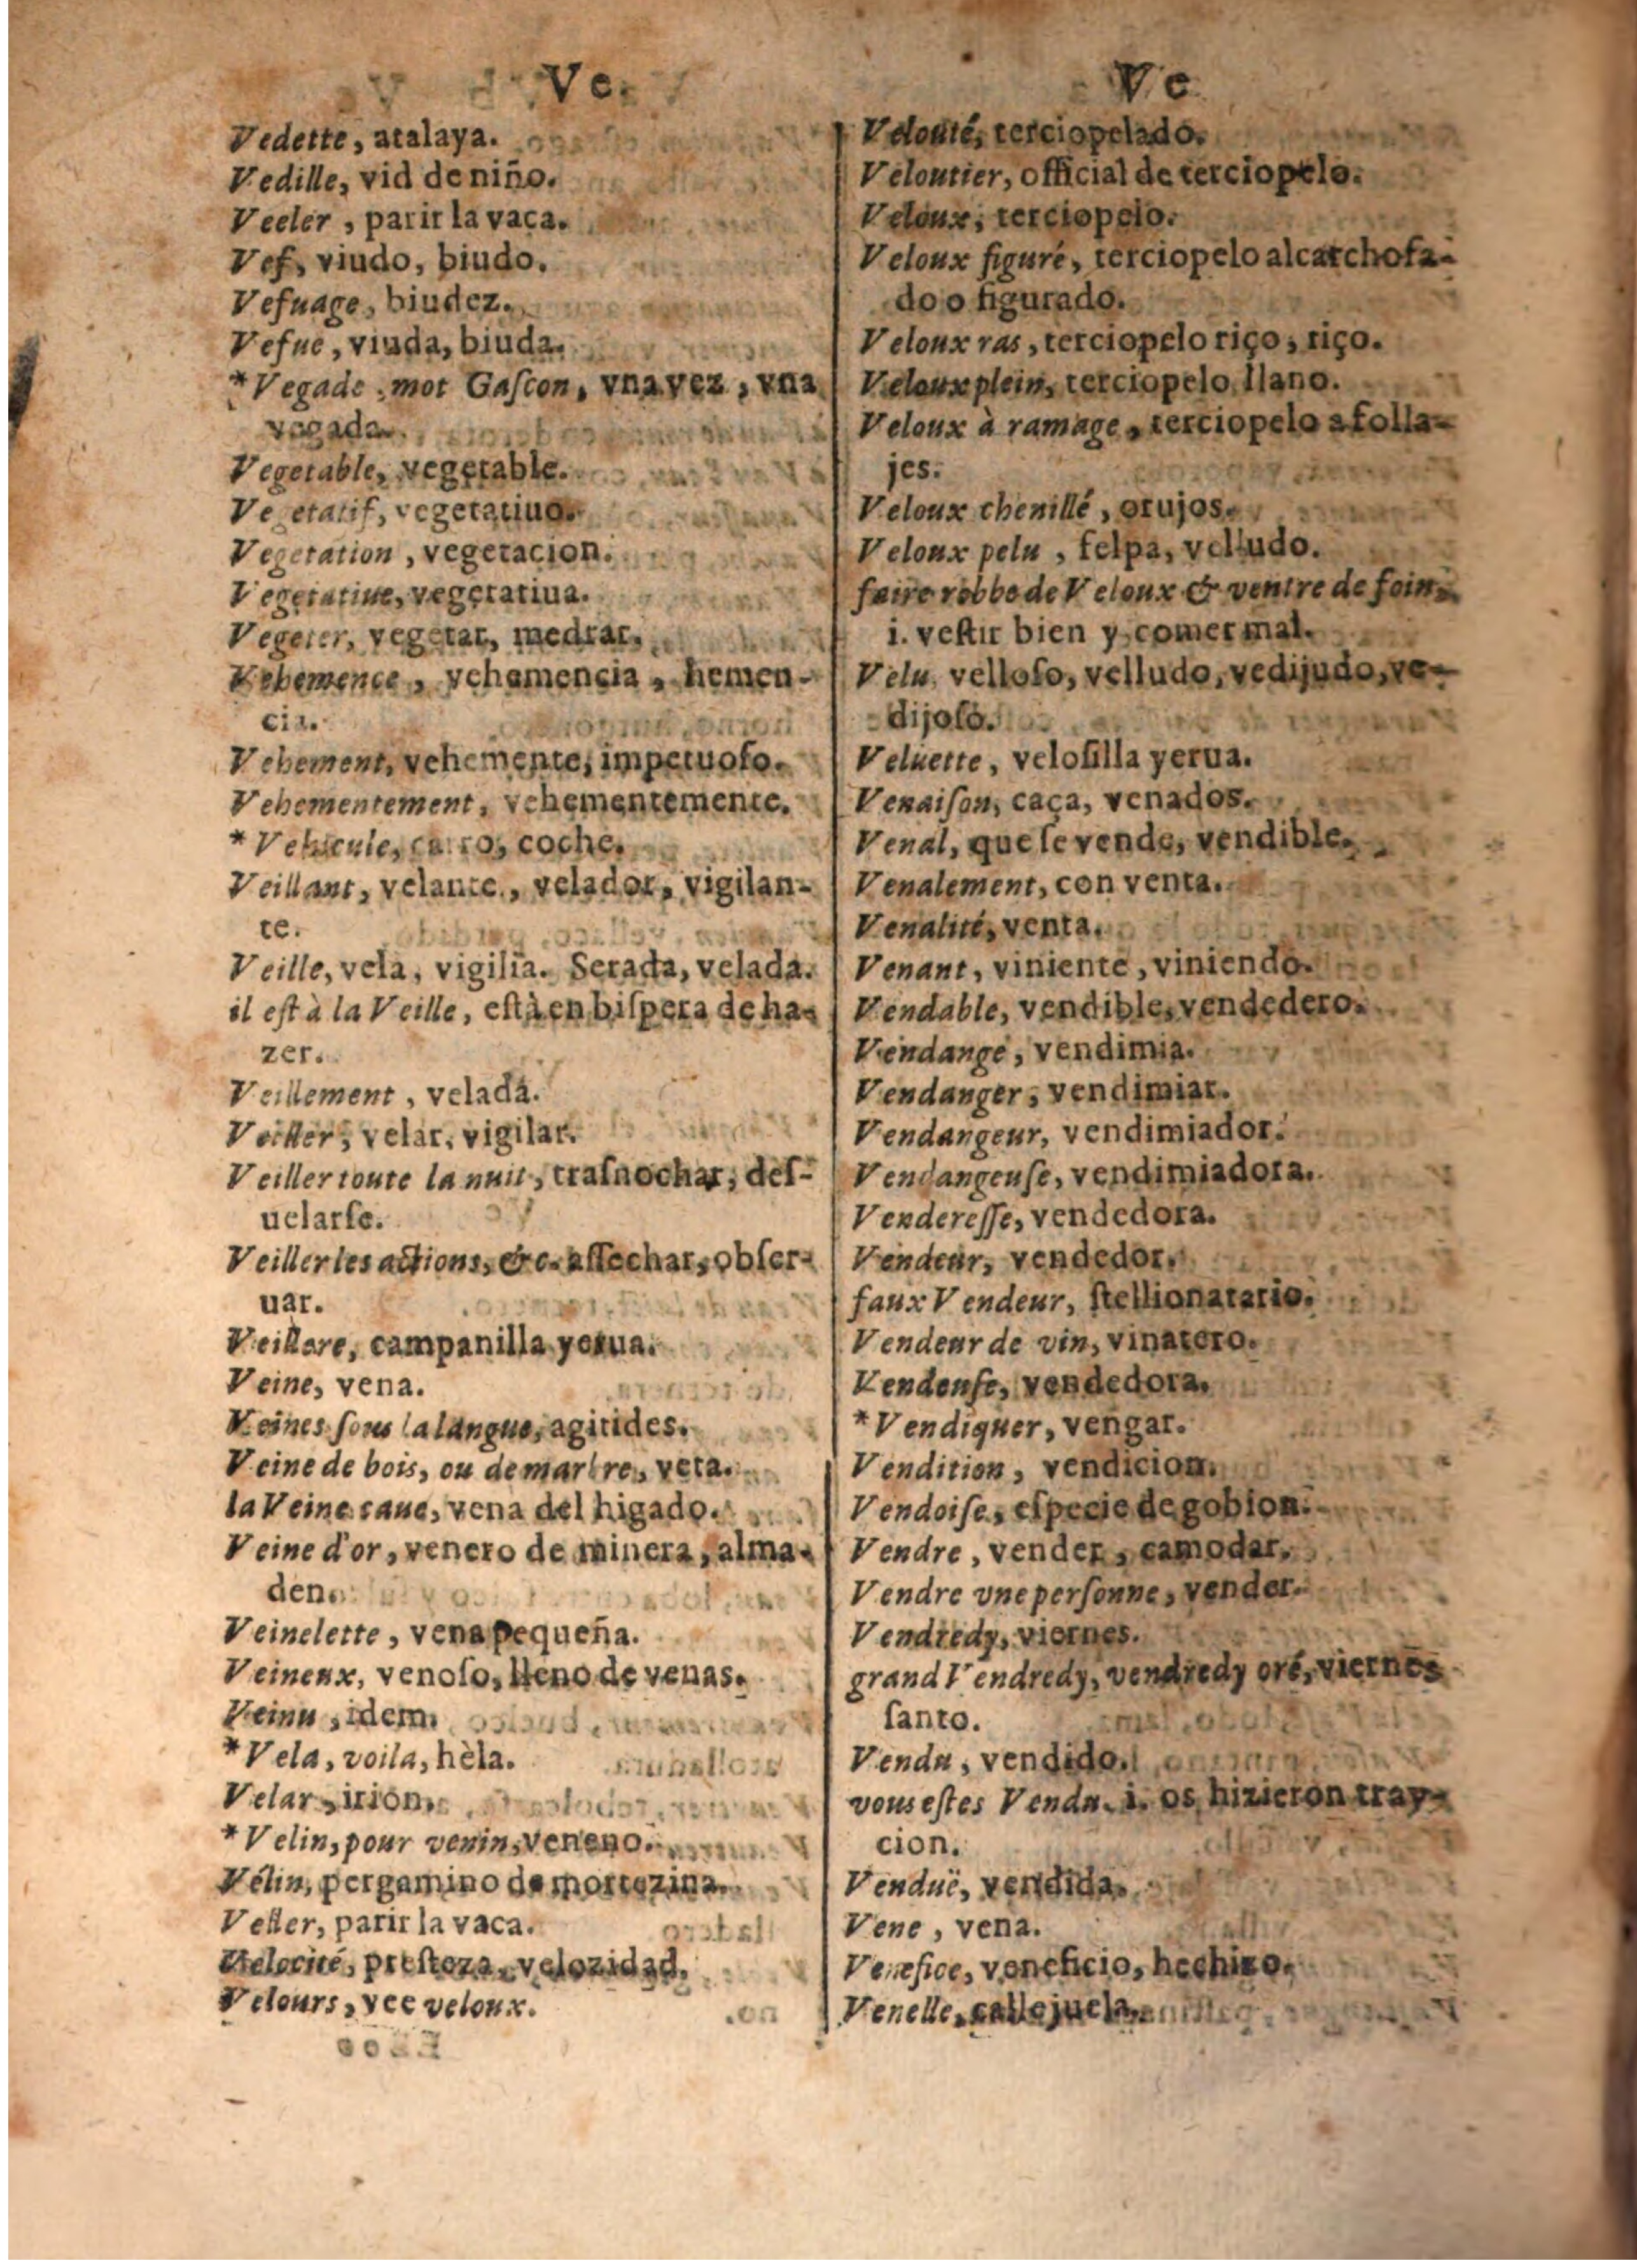 Ve.
Vedette, atalaya.
Vedille, vid de niño.
Veeler, parir la vaca.
Vef, viudo, biudo.
Vefuage, biudez.
Vefue, viuda, biuda.
*Vegade, mot Gaſcon, vna vez, vna
vegada.
Vegetable, vegetable.
Vegetatif, vegetatiuo.
Vegetation, vegetacion.
Vegetatiue, vegetatiua.
Vegeter, vegetar, medrar.
Vehemence, vehemencia, hemen-
cia.
Vehement, vehemente, impetuoſo.
Vehementement, vehementemente.
*Vehicule, carro, coche.
Veillant, velante, velador, vigilan-
te.
Veille, vela, vigilia. Serada, velada.
il eſt à la Veille, eſtà en biſpera de ha-
zer.
Veillement, velada.
Veiller, velar, vigilar.
Veiller toute la nuit, traſnochar, deſ-
uelarſe.
Veiller les actions, &c. aſſechar, obſer-
uar.
Veillere, campanilla yerua.
Veine, vena.
Veines ſous la langue, agitides.
Veine de bois, ou de marbre, veta.
la Veine caue, vena del higado.
Veine d'or, venero de minera, alma-
den.
Veinelette, vena pequeña.
Veineux, venoſo, lleno de venas.
Veinu, idem.
*Vela, voila, hèla.
Velar, irion.
*Velin, pour venin, veneno.
Vélin, pergamino de mortezina.
Veller, parir la vaca.
Velocité, preſteza, velozidad.
Velours, vee veloux.
Ve
Velouté, terciopelado.
Veloutier, official de terciopelo.
Veloux, terciopelo.
Veloux figuré, terciopelo alcarchofa-
do o figurado.
Veloux ras, terciopelo riço, riço.
Veloux plein, terciopelo llano.
Veloux à ramage, terciopelo a folla-
jes.
Veloux chenillé, orujos.
Veloux pelu, felpa, velludo.
faire robbe de Veloux & ventre de foin,
i. veſtir bien y comer mal.
Velu, velloſo, velludo, vedijudo, ve-
dijoſo.
Veluette, veloſilla yerua.
Venaiſon, caça, venados.
Venal, que ſe vende, vendible.
Venalement, con venta.
Venalité, venta.
Venant, viniente, viniendo.
Vendable, vendible, vendedero.
Vendange, vendimia.
Vendanger, vendimiar.
Vendangeur, vendimiador.
Vendangeuſe, vendimiadora.
Vendereſſe, vendedora.
Vendeur, vendedor.
faux Vendeur, ſtellionatario.
Vendeur de vin, vinatero.
Vendeuſe, vendedora.
*Vendiquer, vengar.
Vendition, vendicion.
Vendoiſe, eſpecie de gobion.
Vendre, vender, camodar.
Vendre vne perſonne, vender.
Vendredy, viernes.
grand Vendredy, vendredy oré, viernes
ſanto.
Vendu, vendido.
vous eſtes Vendu. i. os hizieron tray-
cion.
Venduë, vendida.
Vene, vena.
Venefice, veneficio, hechizo.
Venelle, callejuela.